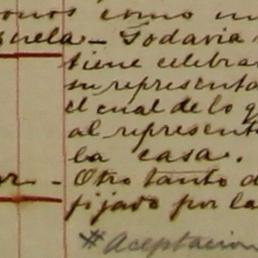 como
uela - Todavia
tiene celebra
su representa
el cual de lo q
al represent
la casa.
- Otro tanto d
fijado por la
# Aceptacion